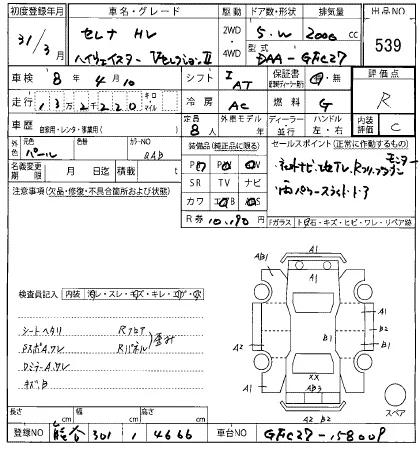 初度登録年月 車名・グレード 駆動 ドア数・形状 排気量 出品NO
31/3月 セレナ HV 2WD 4WD 5.W 2000 cc 539
ハイウェイスター VセレクションⅡ 型式 DAA-GFC27
車検 8年4月10 シフト I AT 保証書 有・無 評価点
走行 13万2220 キロ マイル 冷房 AC 燃料 G R
車歴 自家用・レンタ・事業用( ) 定員 8人 外車モデル 年 ディーラー 並行 ハンドル 左・右 内装評価 C
外色 元色 パール 色替 カラーNO QAB 装備品(純正品に限る) セールスポイント(正常に作動するもの)
名義変更期限 月 日迄 積載 t PS PW
注意事項(欠品・修復・不具合箇所および状態) SR TV ナビ 両パワースライドドア
カワ エアB
R券 10,190円 Fガラス トビ石・キズ・ヒビ・ワレ・リペア跡
検査員記入 内装 汚レ・スレ・キズ・キレ・コゲ・穴
シートヘタリ Rフロア
Rパネル 歪み
キズ、凹
A1
AB1 A1
A1
B1 B2
A2 B1
A1
XX
AB3
A2 B2
スペア
長さ cm 幅 cm 高さ cm
登録NO 301 4666 車台NO GFC27-158009